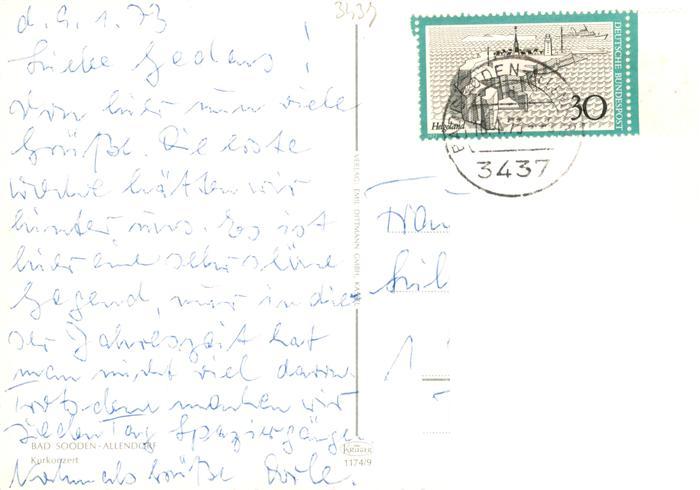 d. 9.1.73
Liebe Gedans!
Von hier nun viele
Grüße. Die erste
Woche hätten wir
hinter uns. Es ist
hier eine sehr schöne
Gegend, nur in die-
ser Jahreszeit hat
man nicht viel davon
trotzdem machen wir
jeden Tag Spaziergänge
Nochmals Grüße
BAD SOODEN-ALLENDORF
Kurkonzert
VERLAG EMIL DITTMANN GMBH, KASSEL
KRÜGER
1174/9
3439
DEUTSCHE BUNDESPOST
Helgoland
30
BAD SOODEN
3437
1